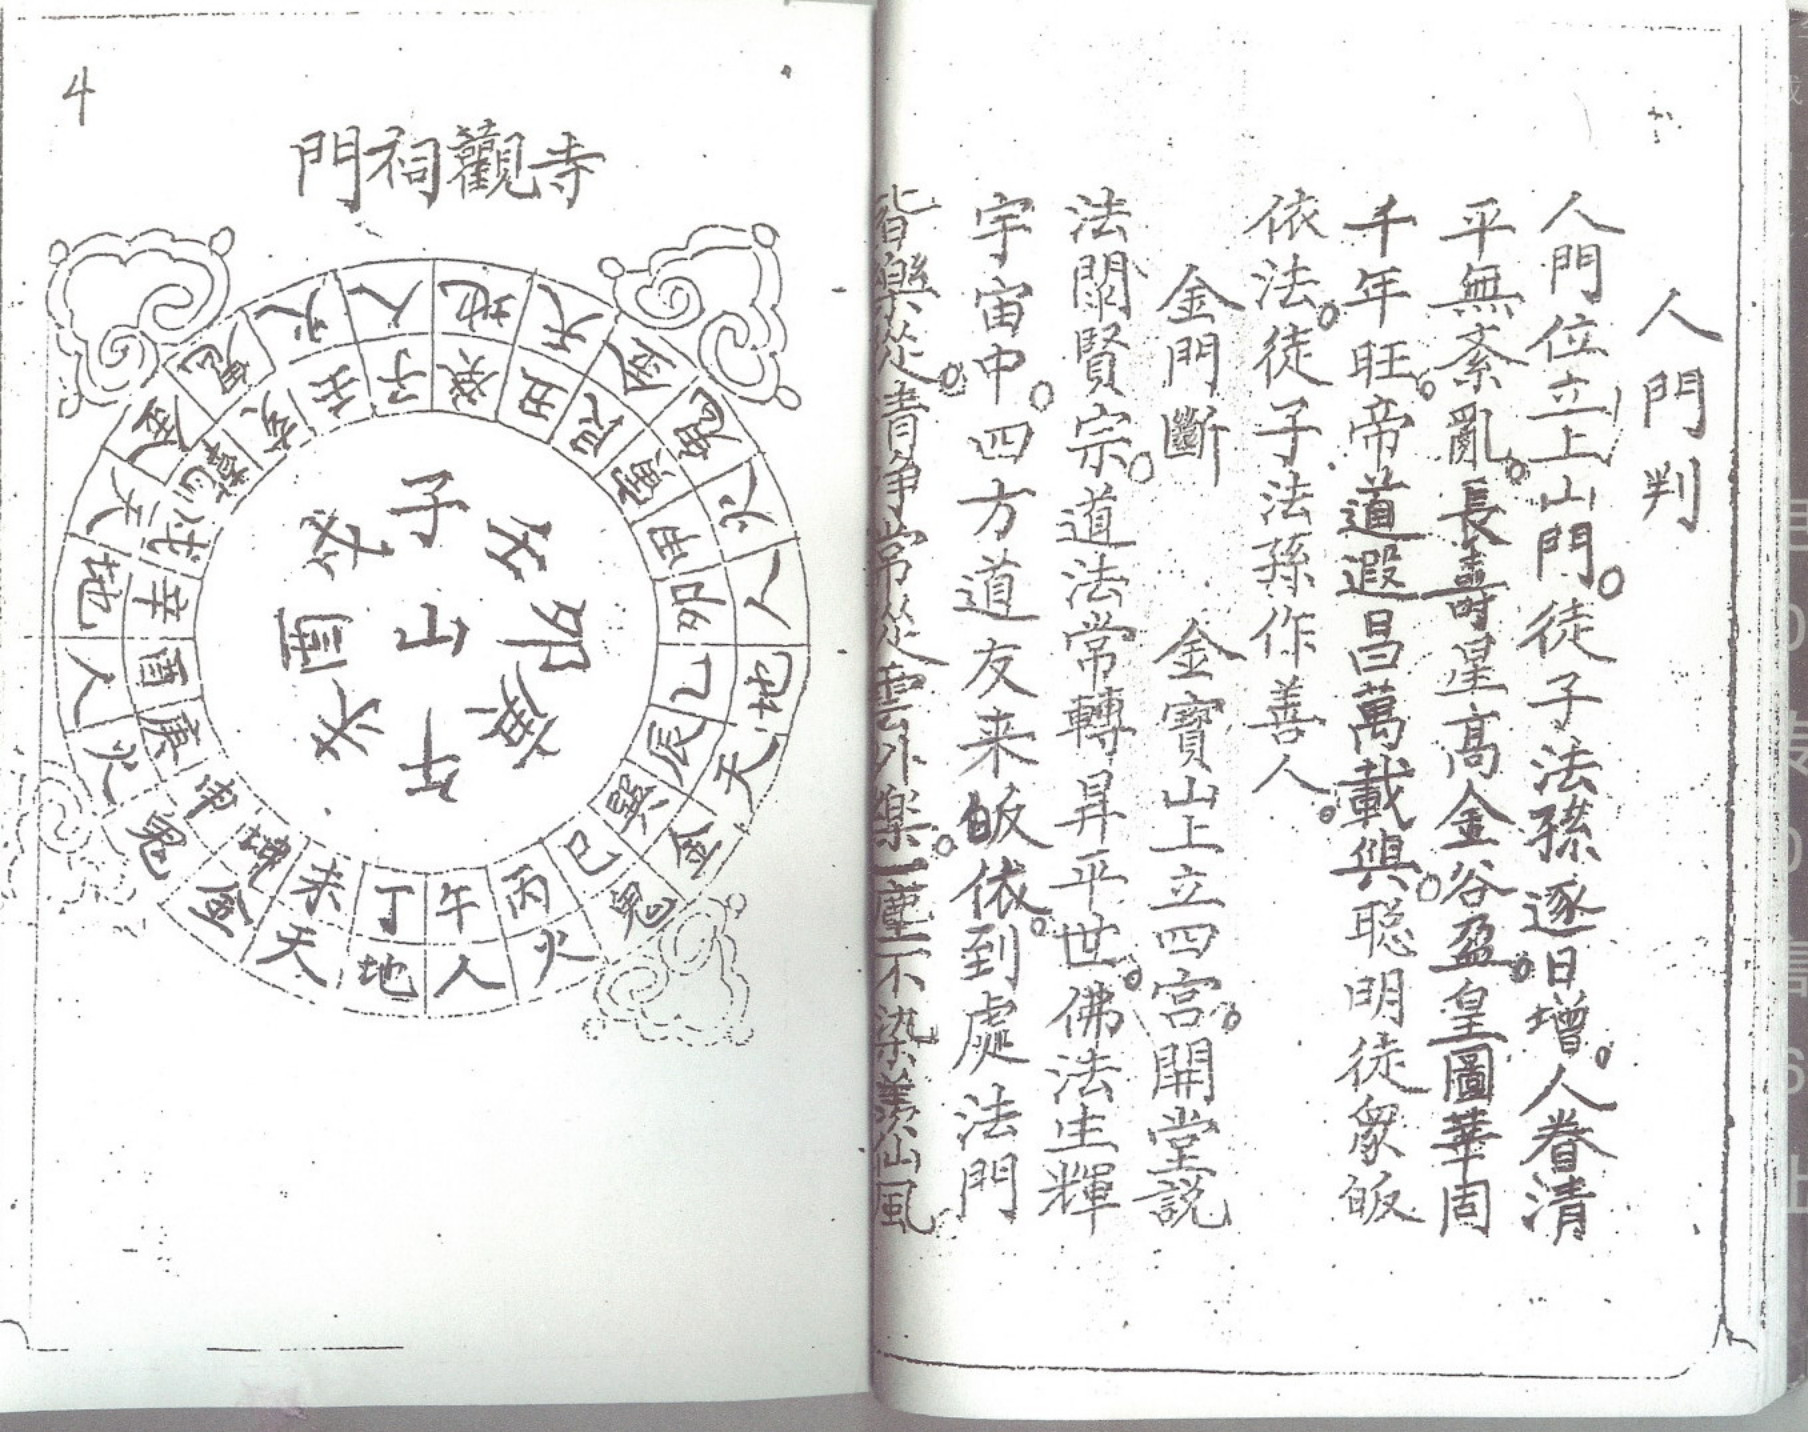 人門判
人門位立上山門。徒子法孫逐日增。人眷清
平無紊亂。長壽星高金谷盈。皇圖華固
千年旺。帝道遐昌萬載興。聰明徒眾皈
依法。徒子法孫作善人。
金門斷 金寶山上立四宮。開堂説
法闡賢宗。道法常轉昇平世。佛法生輝
宇宙中。四方道友来皈依。到處法門
皆樂從。清淨常從雲外樂。一塵不染羨仙風
4
門祠觀寺
人地天金鬼火人地天金鬼火人地天金鬼火人地天金鬼火
子癸丑艮寅甲卯乙辰巽巳丙午丁未坤申庚酉辛戌乾亥壬
子
山
卯
午